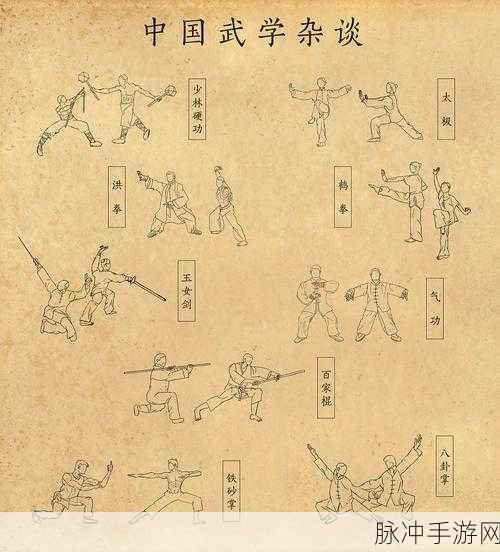 中国武学杂谈
少林硬功
太极
洪拳
鹤拳
玉女剑
气功
百家棍
铁砂掌
八卦掌
脉冲手游网